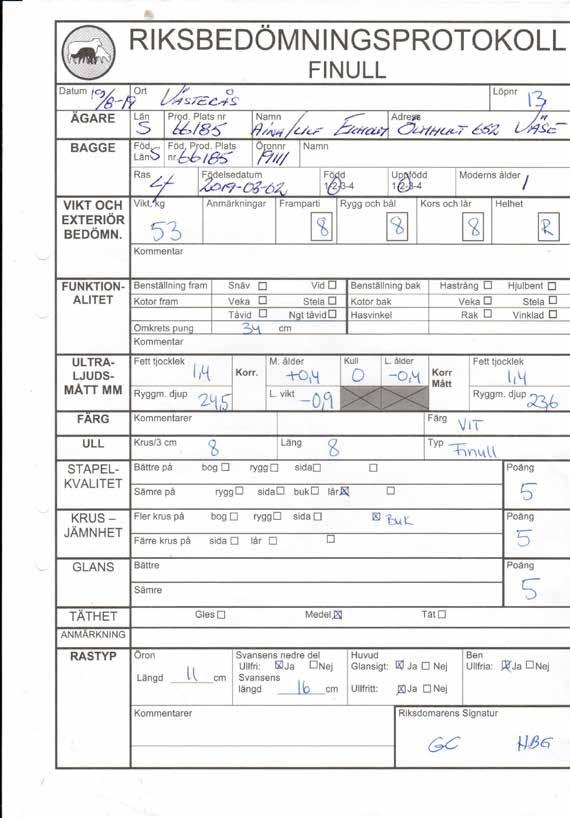 RIKSBEDÖMNINGSPROTOKOLL
FINULL
Datum 19/8-19 Ort VÄSTERÅS Löpnr 13
ÄGARE Län S Prod. Plats nr 66185 Namn AINA/ULF Adress ÖLMHULT 652 VÄSE
BAGGE Född Län S Föd. Prod. Plats nr. 66185 Öronnr 19111 Namn
Ras 4 Födelsedatum 2019-03-02 Född 1-2-3-4 Uppfödd 1-2-3-4 Moderns ålder 1
VIKT OCH EXTERIÖR BEDÖMN. Vikt, kg 53 Anmärkningar Framparti 8 Rygg och bål 8 Kors och lår 8 Helhet R
Kommentar
FUNKTION-ALITET Benställning fram Snäv ☐ Vid ☐ Benställning bak Hastrång ☐ Hjulbent ☐
Kotor fram Veka ☐ Stela ☐ Kotor bak Veka ☐ Stela ☐
Tåvid ☐ Ngt tåvid ☐ Hasvinkel Rak ☐ Vinklad ☐
Omkrets pung 34 cm
Kommentar
ULTRA-LJUDS-MÅTT MM Fett tjocklek 1,4 Korr. M. ålder +0,4 Kull 0 L. ålder -0,4 Korr Mått Fett tjocklek 1,4
Ryggm. djup 24,5 L. vikt -0,9 Ryggm. djup 23,6
FÄRG Kommentarer Färg VIT
ULL Krus/3 cm 8 Läng 8 Typ Finull
STAPEL-KVALITET Bättre på bog ☐ rygg ☐ sida ☐ ☐ Poäng 5
Sämre på rygg ☐ sida ☐ buk ☐ lår ☒ ☐
KRUS – JÄMNHET Fler krus på bog ☐ rygg ☐ sida ☐ ☒ BUK Poäng 5
Färre krus på sida ☐ lår ☐ ☐
GLANS Bättre Poäng 5
Sämre
TÄTHET Gles ☐ Medel ☒ Tät ☐
ANMÄRKNING
RASTYP Öron Svansens nedre del Huvud Ben
Ullfri: ☒ Ja ☐ Nej Glansigt: ☒ Ja ☐ Nej Ullfria: ☒ Ja ☐ Nej
Längd 11 cm Svansens längd 16 cm Ullfritt: ☒ Ja ☐ Nej
Kommentarer Riksdomarens Signatur
GC HBG